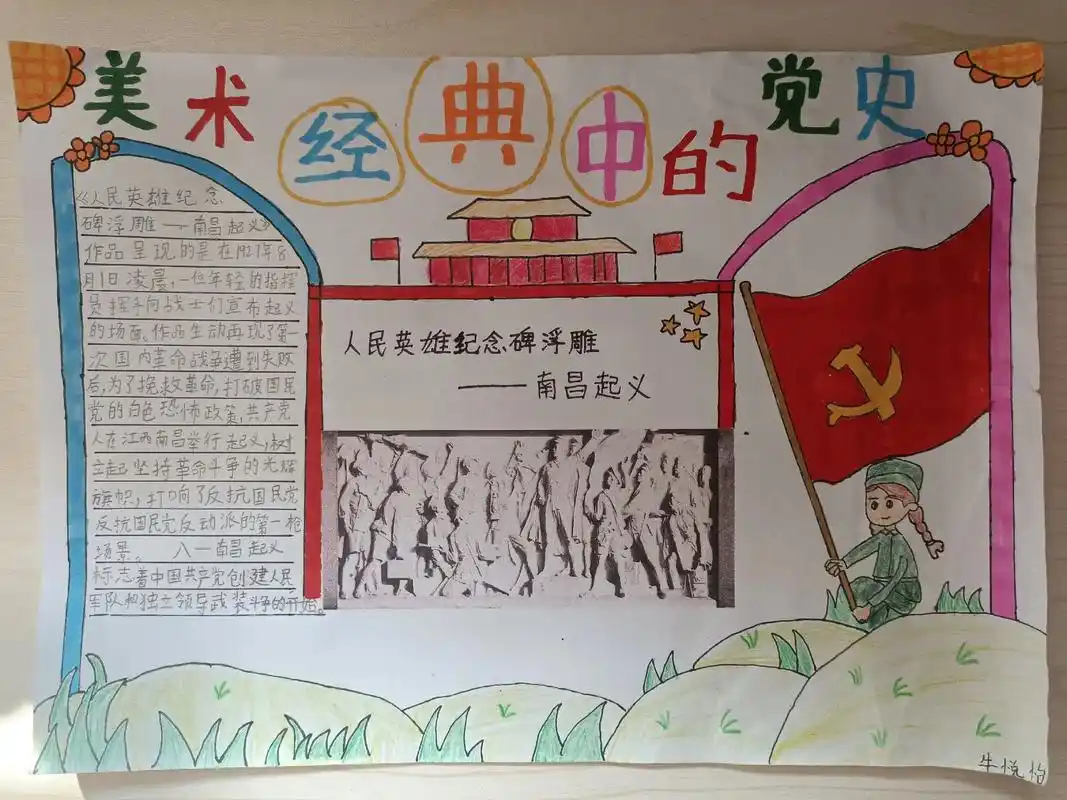 美术经典中的党史
《人民英雄纪念
碑浮雕——南昌起义》
作品呈现的是在1927年8
月1日凌晨,一位年轻的指挥
员挥手向战士们宣布起义
的场面。作品生动再现了第一
次国内革命战争遭到失败
后,为了挽救革命,打破国民
党的白色恐怖政策,共产党
人在江西南昌举行起义,树
立起坚持革命斗争的光辉
旗帜,打响了反抗国民党
反抗国民党反动派的第一枪
场景。 八一南昌起义
标志着中国共产党创建人民
军队和独立领导武装斗争的开始。
人民英雄纪念碑浮雕
——南昌起义
牛悦怡